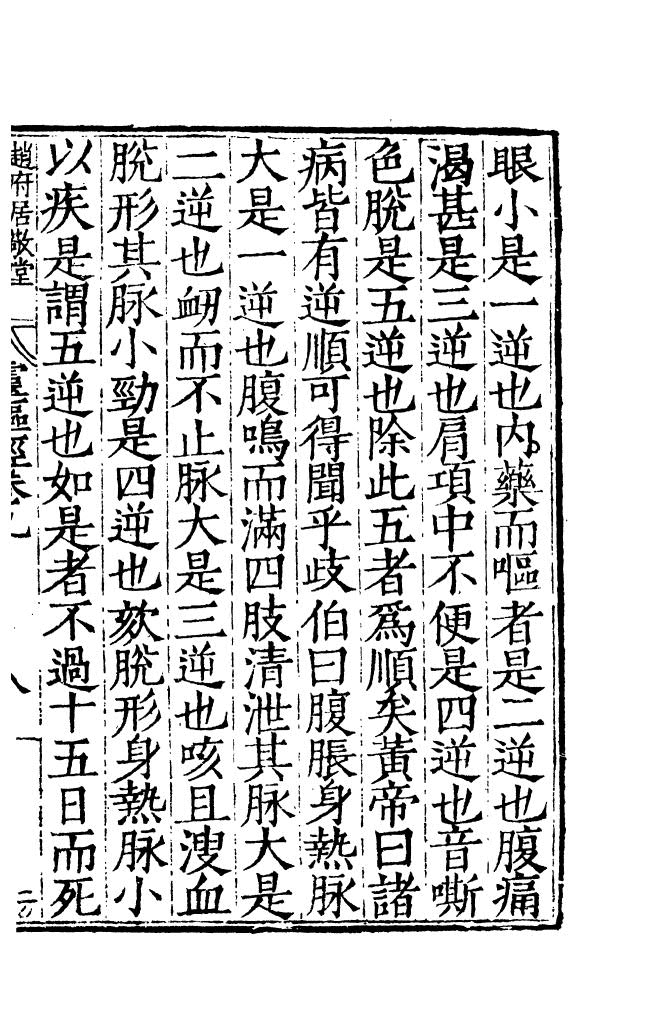 眼小是一逆也内藥而嘔者是二逆也腹痛
渴甚是三逆也肩項中不便是四逆也音嘶
色脫是五逆也除此五者爲順矣黃帝曰諸
病皆有逆順可得聞乎歧伯曰腹脹身熱脉
大是一逆也腹鳴而滿四肢清泄其脉大是
二逆也衂而不止脉大是三逆也咳且溲血
脫形其脉小勁是四逆也欬脫形身熱脉小
以疾是謂五逆也如是者不過十五日而死
趙府居敬堂 靈樞經卷九 八